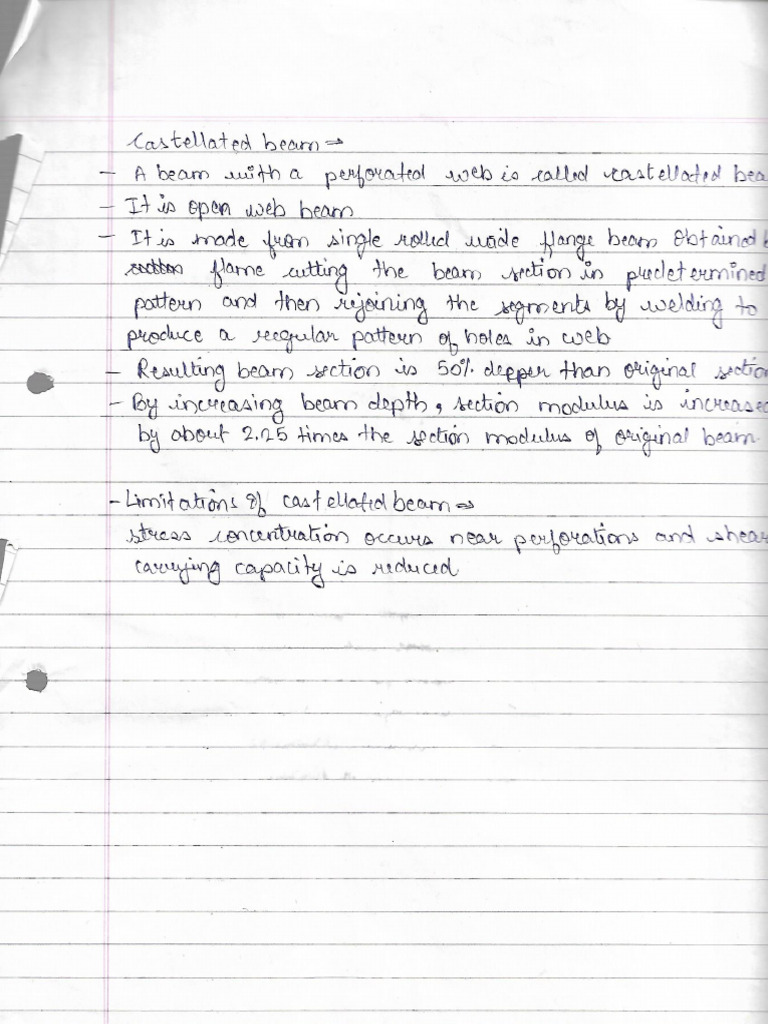 Castellated beam ⇒
- A beam with a perforated web is called castellated bea
- It is open web beam
- It is made from single rolled wide flange beam obtained b
flame cutting the beam section in predetermined
pattern and then rejoining the segments by welding to
produce a reegular pattern of holes in web
- Resulting beam section is 50% depper than original sectio
- By increasing beam depth, section modulus is increased
by about 2.25 times the section modulus of original beam.
- Limitations of castellated beam ⇒
stress concentration occurs near perforations and shear
carrying capacity is reduced